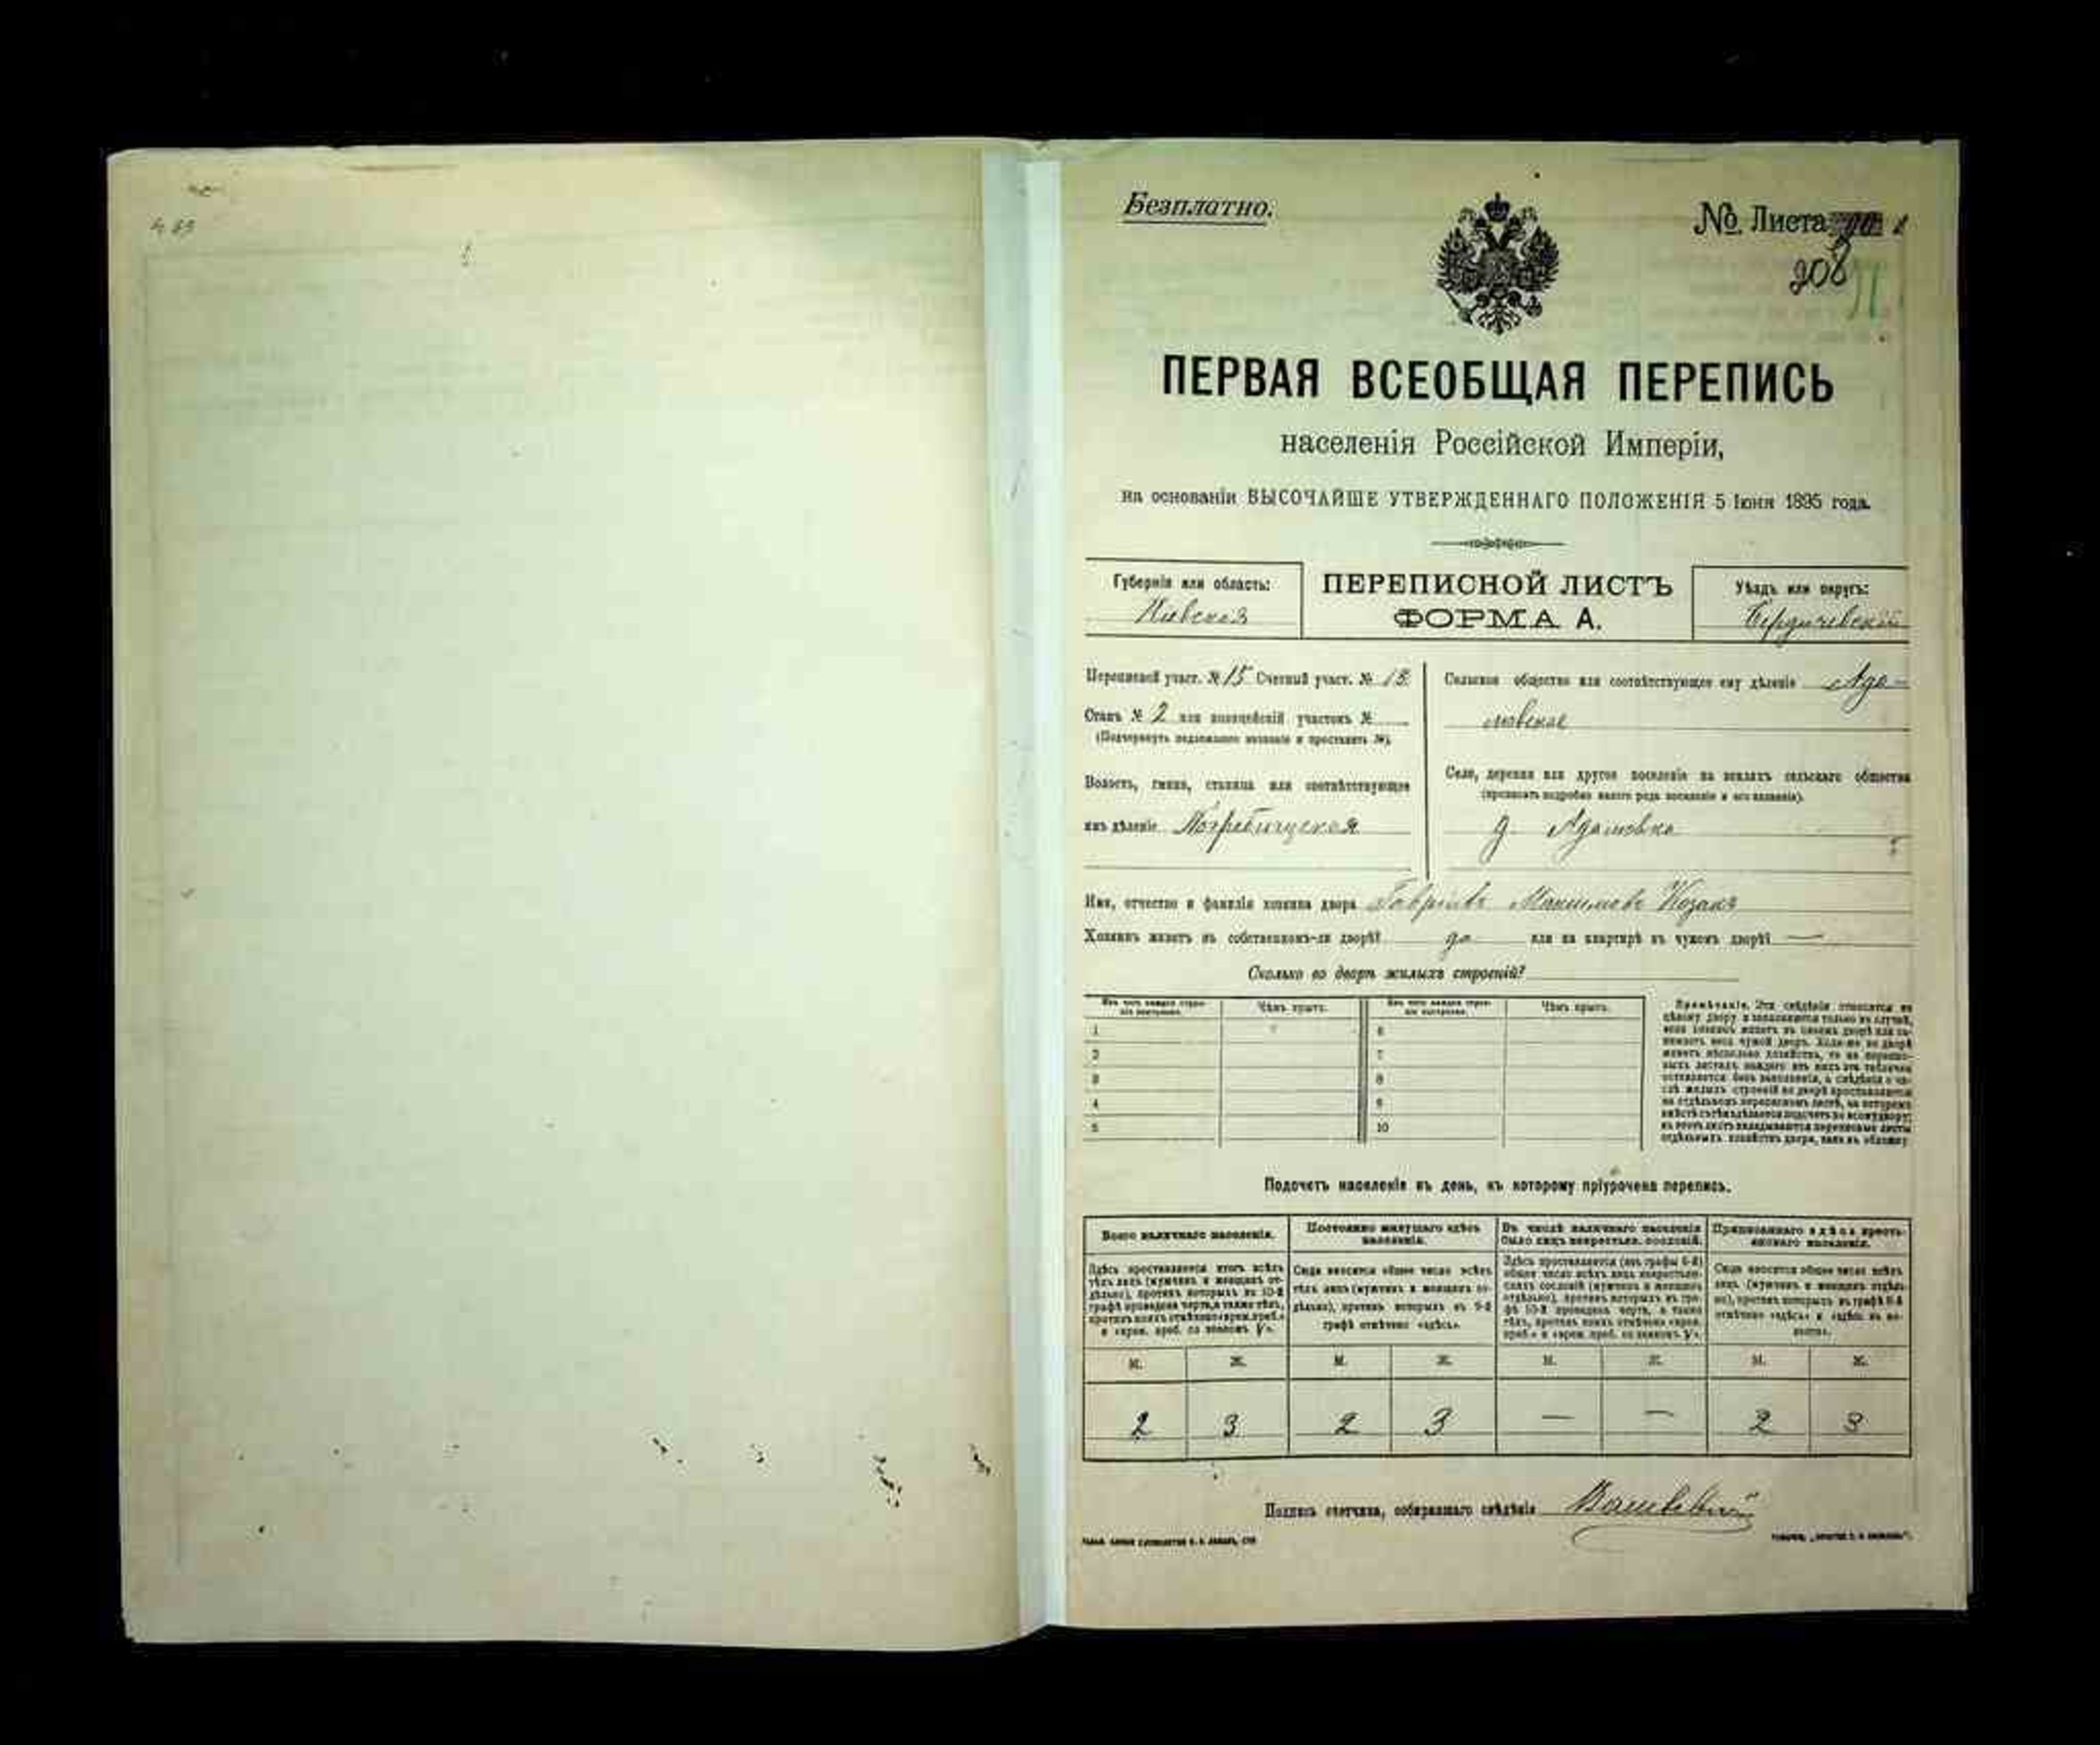 483
Безплатно.
№ Листа
208
ПЕРВАЯ ВСЕОБЩАЯ ПЕРЕПИСЬ
населенія Россійской Имперіи,
на основаніи ВЫСОЧАЙШЕ УТВЕРЖДЕННАГО ПОЛОЖЕНІЯ 5 Іюня 1895 года.
Губернія или область:
Кіевская
ПЕРЕПИСНОЙ ЛИСТЪ
ФОРМА А.
Уѣздъ или округъ:
Бердичевскій
Переписной участ. № 15 Счетный участ. № 18
Станъ № 2 или полицейскій участокъ №
(Подчеркнуть надлежащее названіе и проставить №).
Волость, гмина, станица или соотвѣтствующее
имъ дѣленіе Погребищская
Сельское общество или соотвѣтствующее ему дѣленіе Ада-
мовское
Село, деревня или другое поселеніе на земляхъ сельскаго общества
(прописать подробно какого рода поселеніе и его названіе).
д. Адамовка
Имя, отчество и фамилія хозяина двора Гавріилъ Максимовъ Козакъ
Хозяинъ живетъ въ собственномъ-ли дворѣ? да или на квартирѣ въ чужомъ дворѣ? —
Сколько во дворѣ жилыхъ строеній?
Изъ чего каждое строе-
ніе построено.
Чѣмъ крыто.
Изъ чего каждое строе-
ніе построено.
Чѣмъ крыто.
1 6
2 7
3 8
4 9
5 10
Примѣчаніе. Эти свѣдѣнія относятся къ
цѣлому двору и заполняются только въ случаѣ,
если хозяинъ живетъ въ своемъ дворѣ или за-
нимаетъ весь чужой дворъ. Коли-же во дворѣ
живетъ нѣсколько хозяйствъ, то на перепис-
ныхъ листахъ каждаго изъ нихъ эта табличка
оставляется безъ заполненія, а свѣдѣнія о чи-
слѣ жилыхъ строеній во дворѣ проставляются
на отдѣльномъ переписномъ листѣ, на которомъ
вмѣстѣ съ тѣмъ дѣлается подсчетъ по всему двору;
въ этотъ листъ вкладываются переписные листы
отдѣльныхъ хозяйствъ двора, какъ въ обложку.
Подсчетъ населенія въ день, къ которому пріурочена перепись.
Всего наличнаго населенія.
Здѣсь проставляется итогъ всѣхъ
тѣхъ лицъ (мужчинъ и женщинъ от-
дѣльно), противъ которыхъ въ 10-й
графѣ проведена черта, а также тѣхъ,
противъ коихъ отмѣчено «врем. преб.»
и «врем. преб. со знакомъ V».
Постоянно живущаго здѣсь
населенія.
Сюда вносится общее число всѣхъ
тѣхъ лицъ (мужчинъ и женщинъ от-
дѣльно), противъ которыхъ въ 9-й
графѣ отмѣчено «здѣсь».
Въ числѣ наличнаго населенія
было лицъ некрестьян. сословій.
Здѣсь проставляется (изъ графы 6-й)
общее число всѣхъ лицъ некрестьян-
скихъ сословій (мужчинъ и женщинъ
отдѣльно), противъ которыхъ въ гра-
фѣ 10-й проведена черта, а также
тѣхъ, противъ коихъ отмѣчено «врем.
преб.» и «врем. преб. со знакомъ V».
Приписаннаго здѣсь кресть-
янскаго населенія.
Сюда вносится общее число всѣхъ
лицъ (мужчинъ и женщинъ отдѣль-
но), противъ которыхъ въ графѣ 8-й
отмѣчено «здѣсь» и «здѣсь въ во-
лости».
М. Ж. М. Ж. М. Ж. М. Ж.
2 3 2 3 — — 2 3
Подпись счетчика, собиравшаго свѣдѣнія